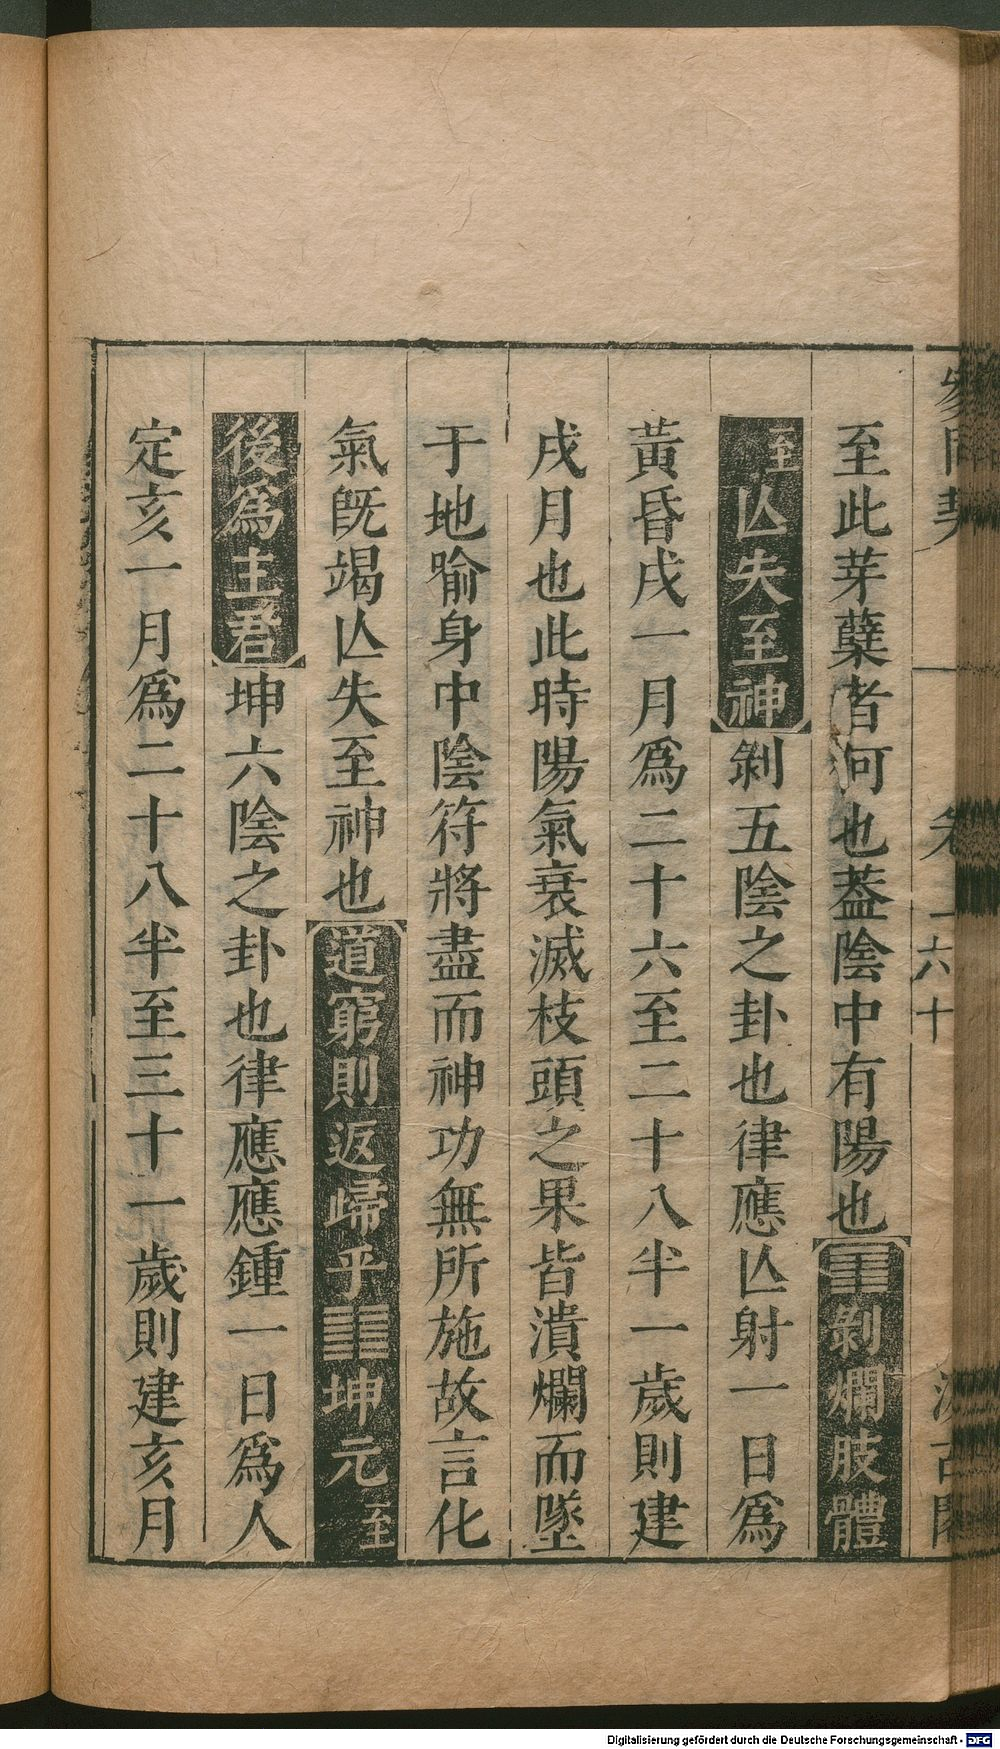 至此芽蘖者何也葢陰中有陽也䷖剝爛肢體
至亾失至神剝五陰之卦也律應亾射一日爲
黃昏戌一月爲二十六至二十八半一歲則建
戌月也此時陽氣衰滅枝頭之果皆潰爛而墜
于地喻身中陰符將盡而神功無所施故言化
氣旣竭亾失至神也道窮則返歸乎䷁坤元至
後爲主君坤六陰之卦也律應應鍾一日爲人
定亥一月爲二十八半至三十一歲則建亥月
參同契 卷一 六十
Digitalisierung gefördert durch die Deutsche Forschungsgemeinschaft - DFG